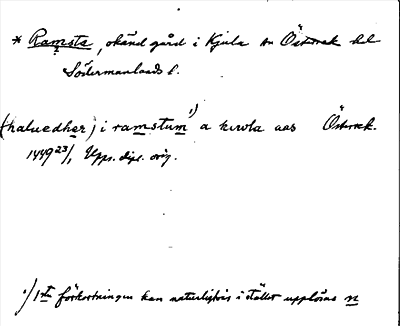 * Ramsta, okänd gård i Kjula sn Österrek. hd
Södermanlands l.
(haluedher) i ramstum 1) a kwla aas Österrek.
1449 23/1 Upps. dipl. orig.
1) 1sta förkortningen kan naturligtvis i stället upplösas n